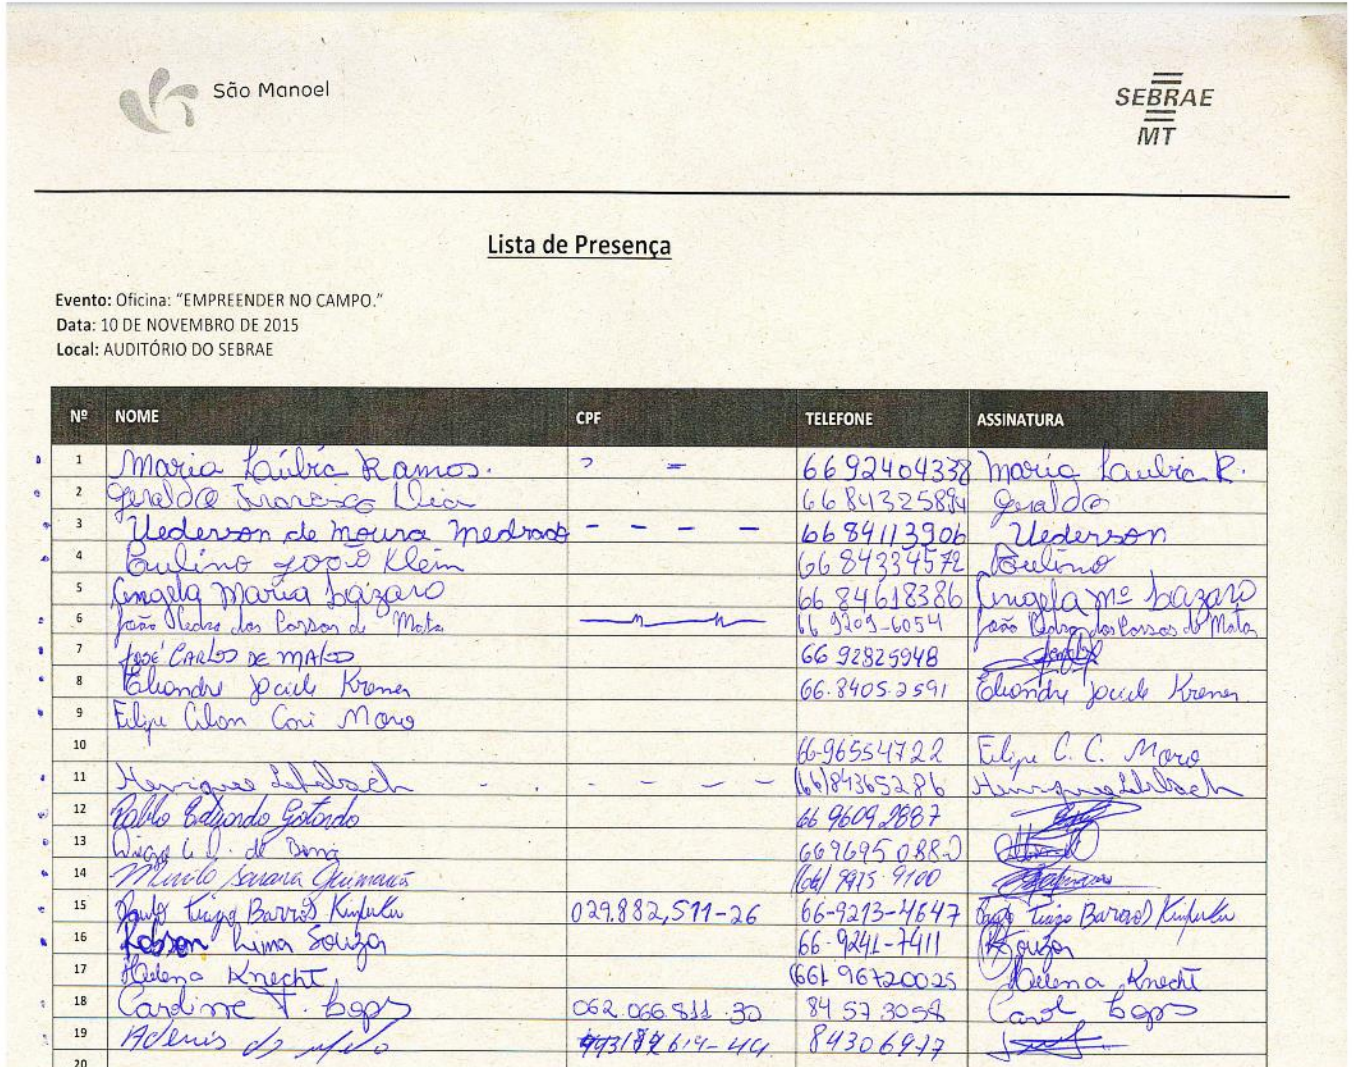 São Manoel
SEBRAE
MT
Lista de Presença
Evento: Oficina: “EMPREENDER NO CAMPO.”
Data: 10 DE NOVEMBRO DE 2015
Local: AUDITÓRIO DO SEBRAE
Nº NOME CPF TELEFONE ASSINATURA
1 Maria Ramos. 6692404338 Maria R.
2 Geraldo 6684325894 Geraldo
3 Uederson de Moura Medrado - - - - 6684113906 Uederson
4 Paulino João Klein 6684334572 Paulino
5 Angela Maria Lázaro 66 84618386 Angela Mª Lazaro
6 João Pedro dos Passos de Mata 66 9209-6054 João Pedro dos Passos de Mata
7 JOSÉ CARLOS DE MATOS 66 92825948
8 Kremer 66.8405.2591 Kremer
9 Filipe Moro
10 66-96554722 Filipe C. C. Moro
11 Henrique (66)84365286 Henrique
12 Pablo Eduardo 66 9609 2887
13 de 669695 0880
14 Murilo Guimarães (66) 9975-9100
15 Paulo Tiago Barros 029.882,511-26 66-9213-4647 Paulo Tiago Barros
16 Robson Lima Souza 66-9241-7411 Souza
17 Helena Knecht (66) 96720025 Helena Knecht
18 F. 062.066.811-30 84 57 3058 Carol
19 84306977
20